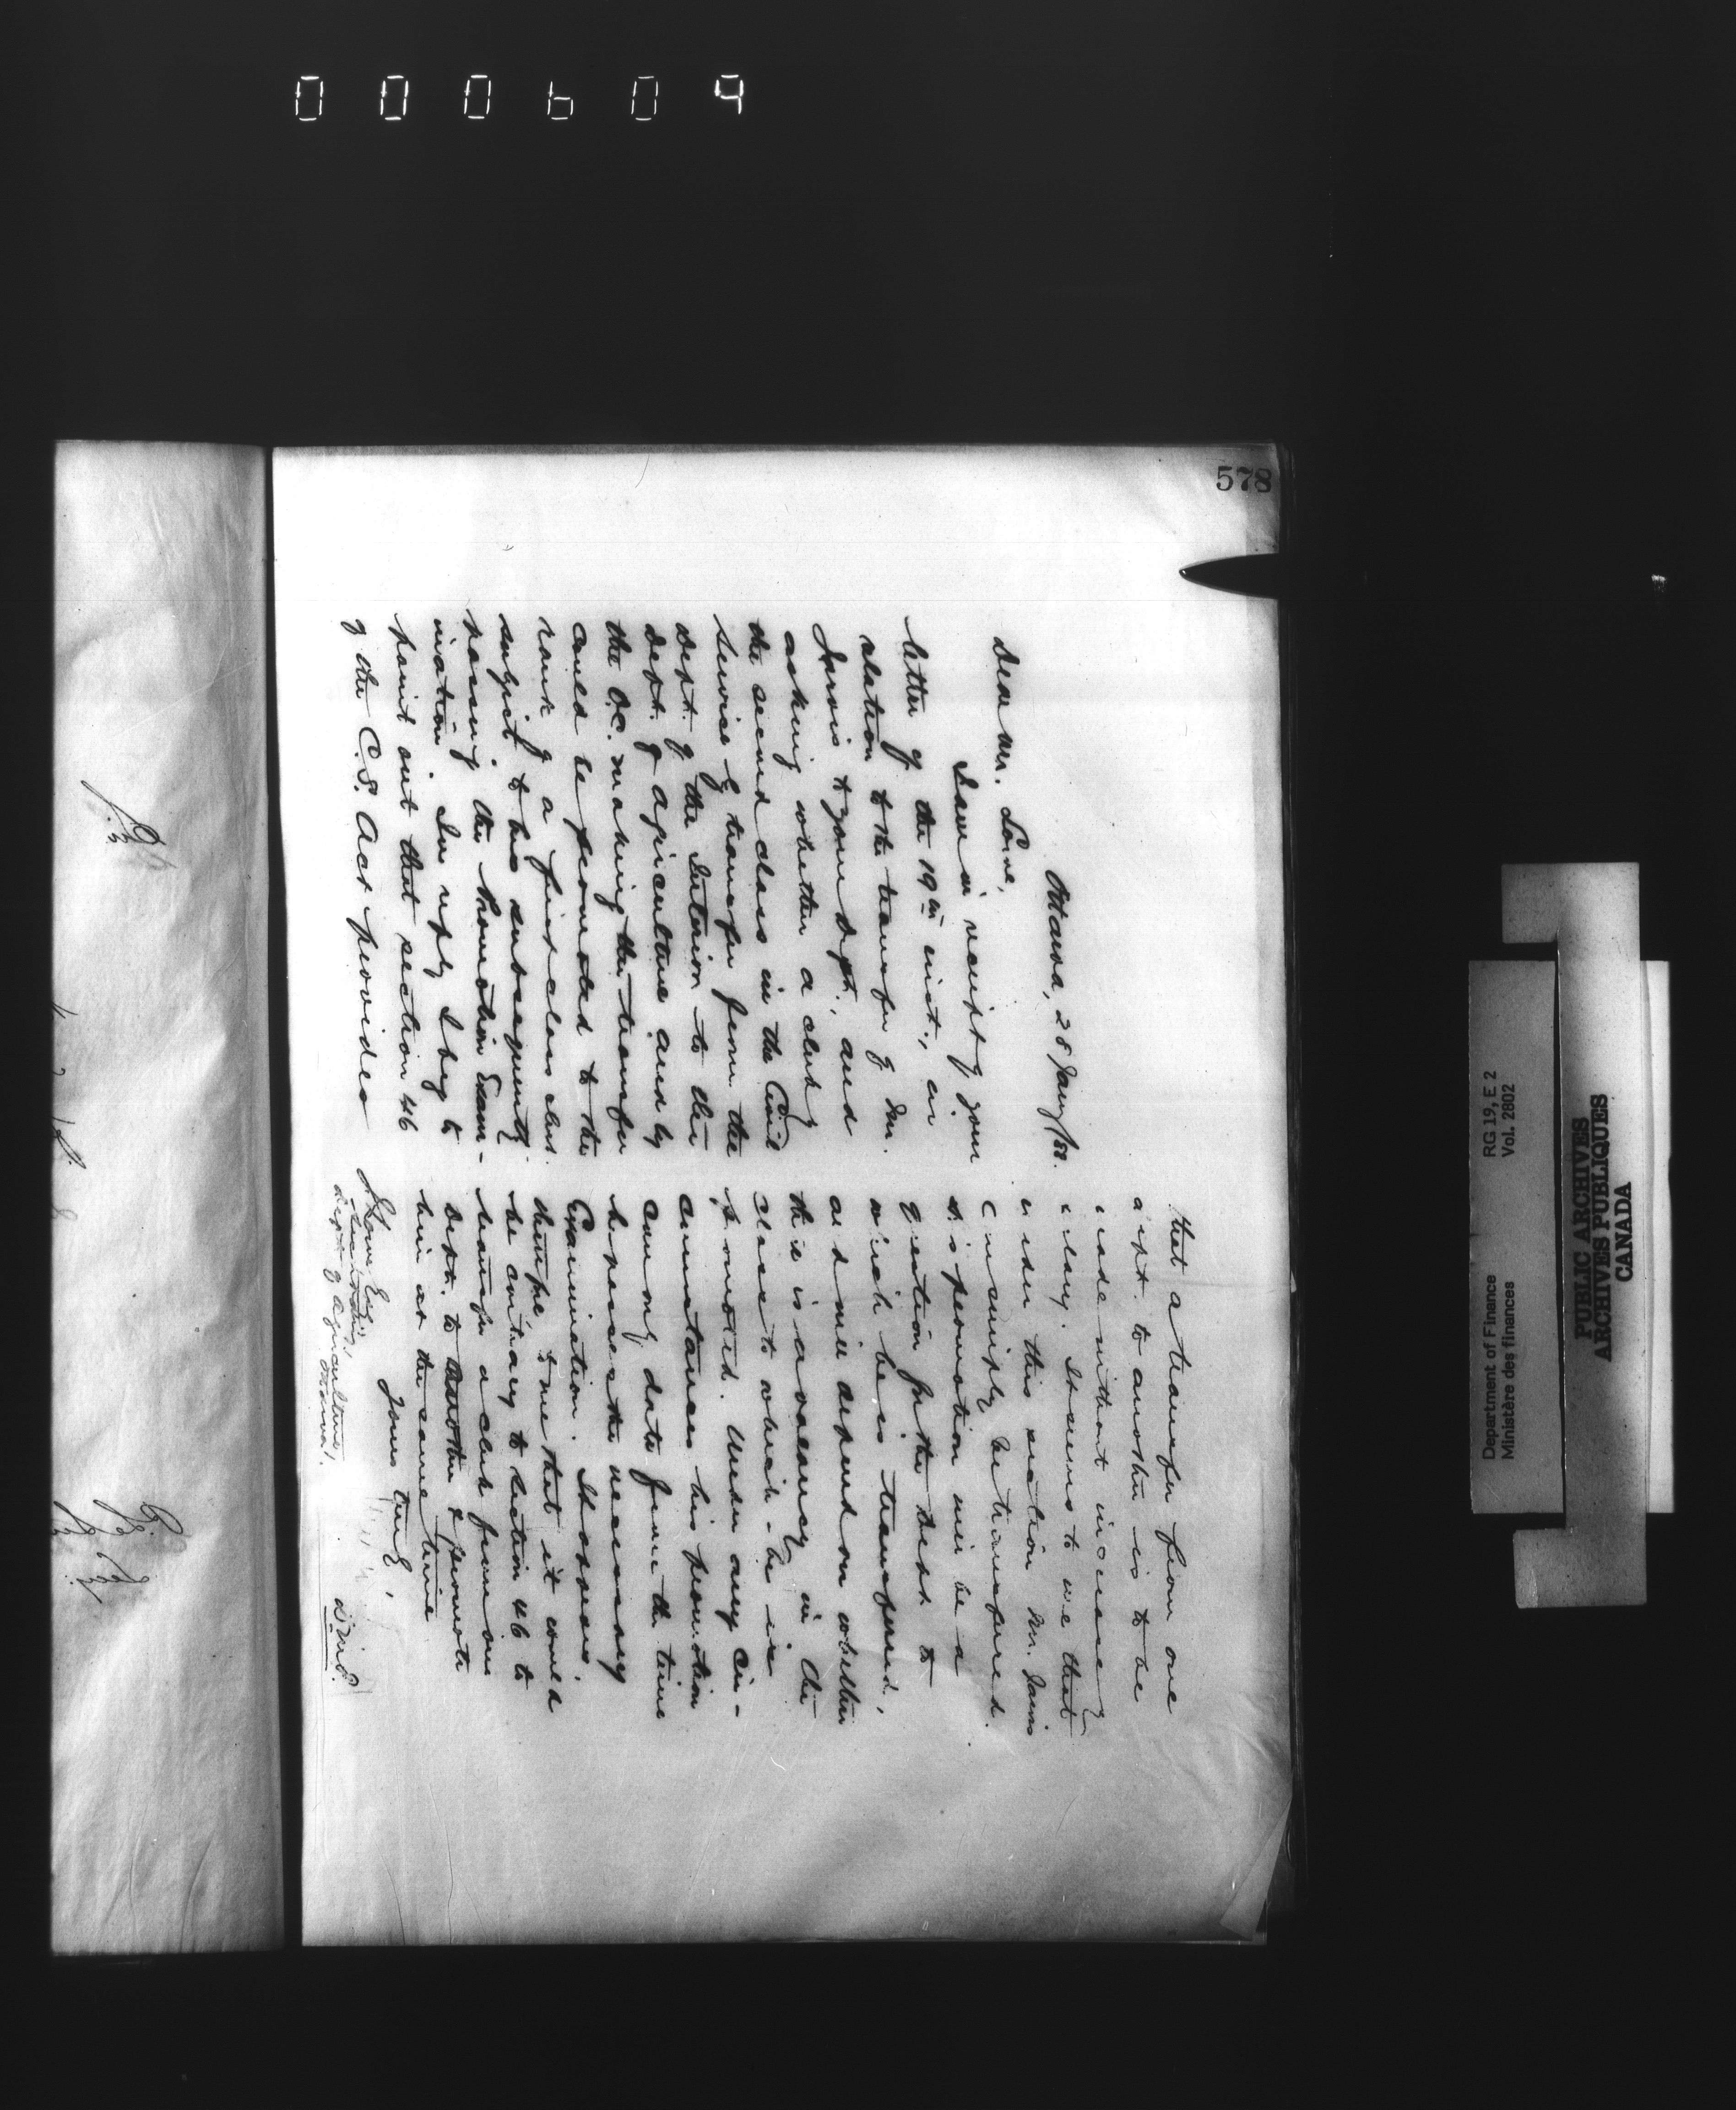 000609
578
Ottawa, 28 Jany/88.
Dear Mr. Lowe,
I am in receipt of your
letter of the 19th inst., in
relation to the transfer of Mr.
Jarvis to your Dept., and
asking whether a clerk of
the second class in the Civil
Service by transfer from the
Dept. of the Interior to the
Dept. of Agriculture and by
the O.C. making the transfer
could be promoted to the
rank of a first class clerk
subject to his subsequently
passing the Promotion Exam-
ination. In reply I beg to
point out that section 46
of the C.S. Act provides
that a transfer from one
dept. to another is to be
made without increase of
salary. It seems to me that
under this section Mr. Jarvis
can simply be transferred.
His promotion will be a
question for the Dept. to
which he is transferred,
and will depend on whether
there is a vacancy in the
class to which he is
promoted. Under any cir-
cumstances his promotion
can only date from the time
he passes the necessary
Examination. It appears,
therefore, to me that it would
be contrary to section 46 to
transfer a clerk from one
Dept. to another & promote
him at the same time
Yours truly,
J. Lowe Esq.
Dept. of Agriculture,
Ottawa.
Department of Finance RG 19, E 2
Ministère des finances Vol. 2802
PUBLIC ARCHIVES
ARCHIVES PUBLIQUES
CANADA